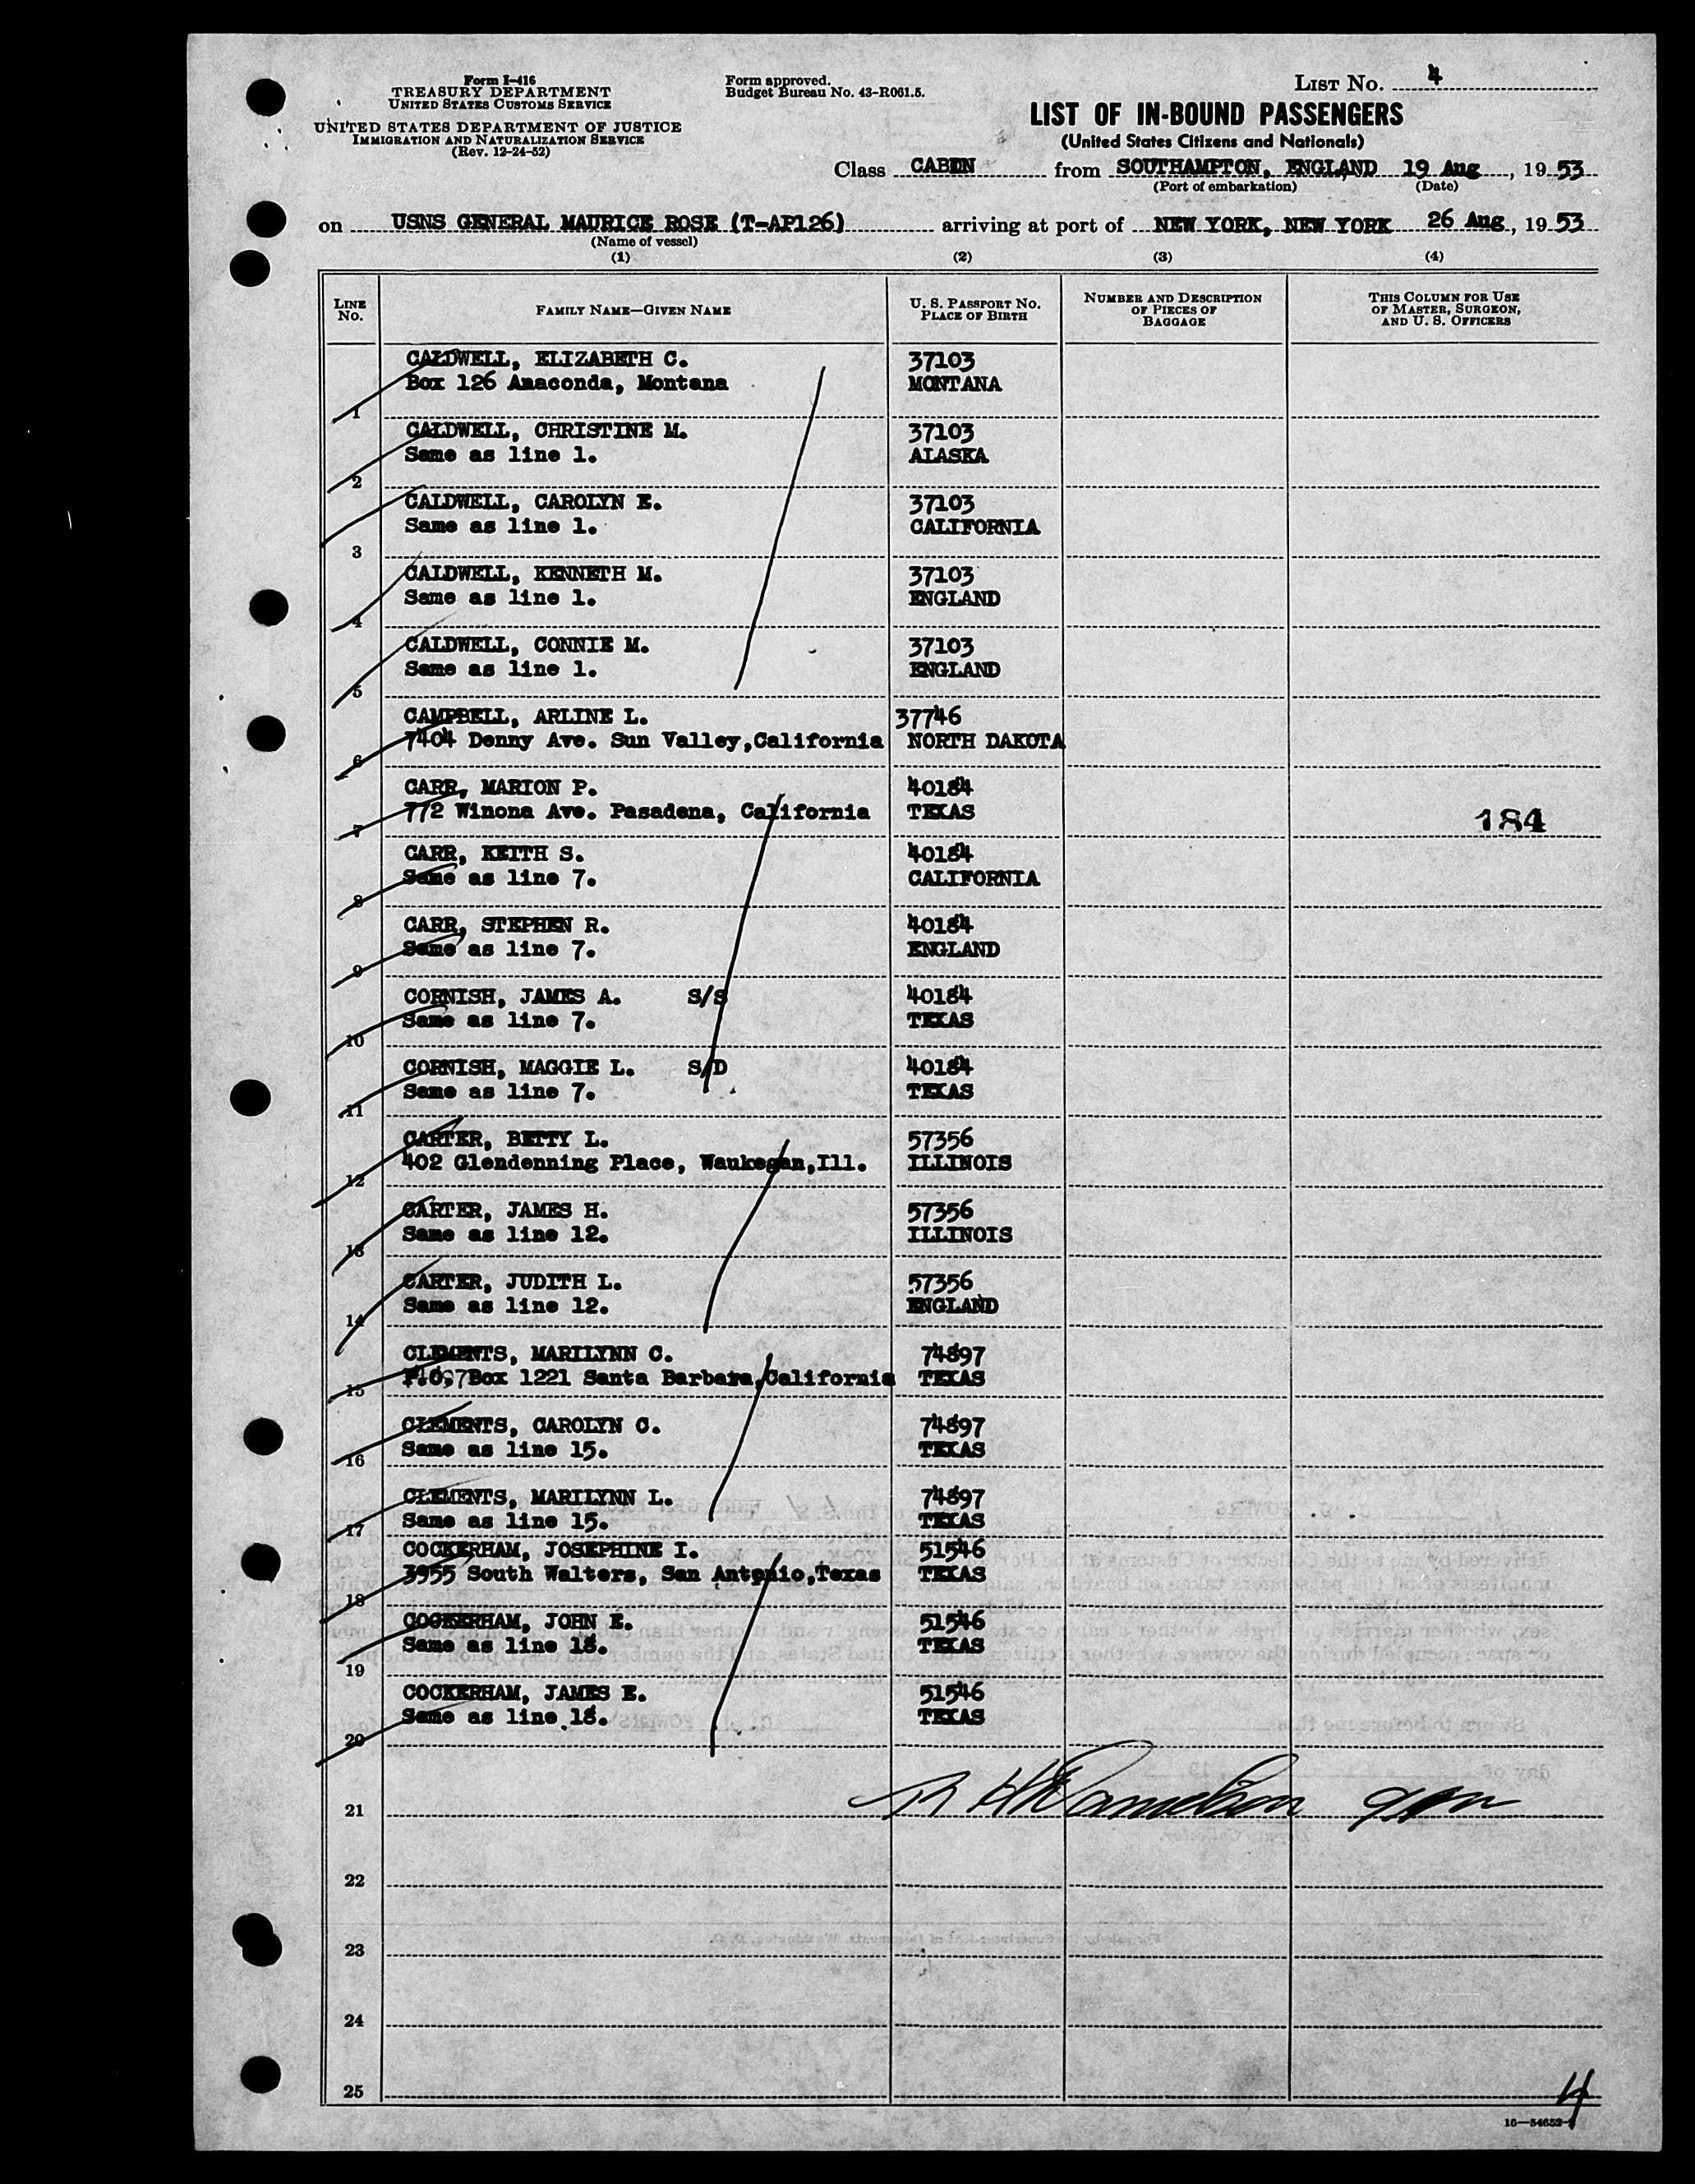 Form I-416
TREASURY DEPARTMENT
UNITED STATES CUSTOMS SERVICE
UNITED STATES DEPARTMENT OF JUSTICE
IMMIGRATION AND NATURALIZATION SERVICE
(Rev. 12-24-52)
Form approved.
Budget Bureau No. 43-R061.5.
LIST NO. 4
LIST OF IN-BOUND PASSENGERS
(United States Citizens and Nationals)
Class CABIN from SOUTHAMPTON, ENGLAND 19 Aug, 1953
(Port of embarkation) (Date)
on USNS GENERAL MAURICE ROSE (T-AP126) arriving at port of NEW YORK, NEW YORK 26 Aug, 1953
(Name of vessel)
(1) (2) (3) (4)
LINE NO. FAMILY NAME—GIVEN NAME U. S. PASSPORT NO. PLACE OF BIRTH NUMBER AND DESCRIPTION OF PIECES OF BAGGAGE THIS COLUMN FOR USE OF MASTER, SURGEON, AND U. S. OFFICERS
CALDWELL, ELIZABETH C. 37103
Box 126 Anaconda, Montana MONTANA
1
CALDWELL, CHRISTINE M. 37103
Same as line 1. ALASKA
2
CALDWELL, CAROLYN E. 37103
Same as line 1. CALIFORNIA
3
CALDWELL, KENNETH M. 37103
Same as line 1. ENGLAND
4
CALDWELL, CONNIE M. 37103
Same as line 1. ENGLAND
5
CAMPBELL, ARLINE L. 37746
7404 Denny Ave. Sun Valley,California NORTH DAKOTA
6
CARR, MARION P. 40184
772 Winona Ave. Pasadena, California TEXAS
7 184
CARR, KEITH S. 40184
Same as line 7. CALIFORNIA
8
CARR, STEPHEN R. 40184
Same as line 7. ENGLAND
9
CORNISH, JAMES A. S/S 40184
Same as line 7. TEXAS
10
CORNISH, MAGGIE L. S/D 40184
Same as line 7. TEXAS
11
CARTER, BETTY L. 57356
402 Glendenning Place, Waukegan,Ill. ILLINOIS
12
CARTER, JAMES H. 57356
Same as line 12. ILLINOIS
13
CARTER, JUDITH L. 57356
Same as line 12. ENGLAND
14
CLEMENTS, MARILYNN C. 74897
P.O. Box 1221 Santa Barbara,California TEXAS
15
CLEMENTS, CAROLYN C. 74897
Same as line 15. TEXAS
16
CLEMENTS, MARILYNN L. 74897
Same as line 15. TEXAS
17
COCKERHAM, JOSEPHINE I. 51546
3955 South Walters, San Antonio,Texas TEXAS
18
COCKERHAM, JOHN E. 51546
Same as line 18. TEXAS
19
COCKERHAM, JAMES E. 51546
Same as line 18. TEXAS
20
21
22
23
24
25
4